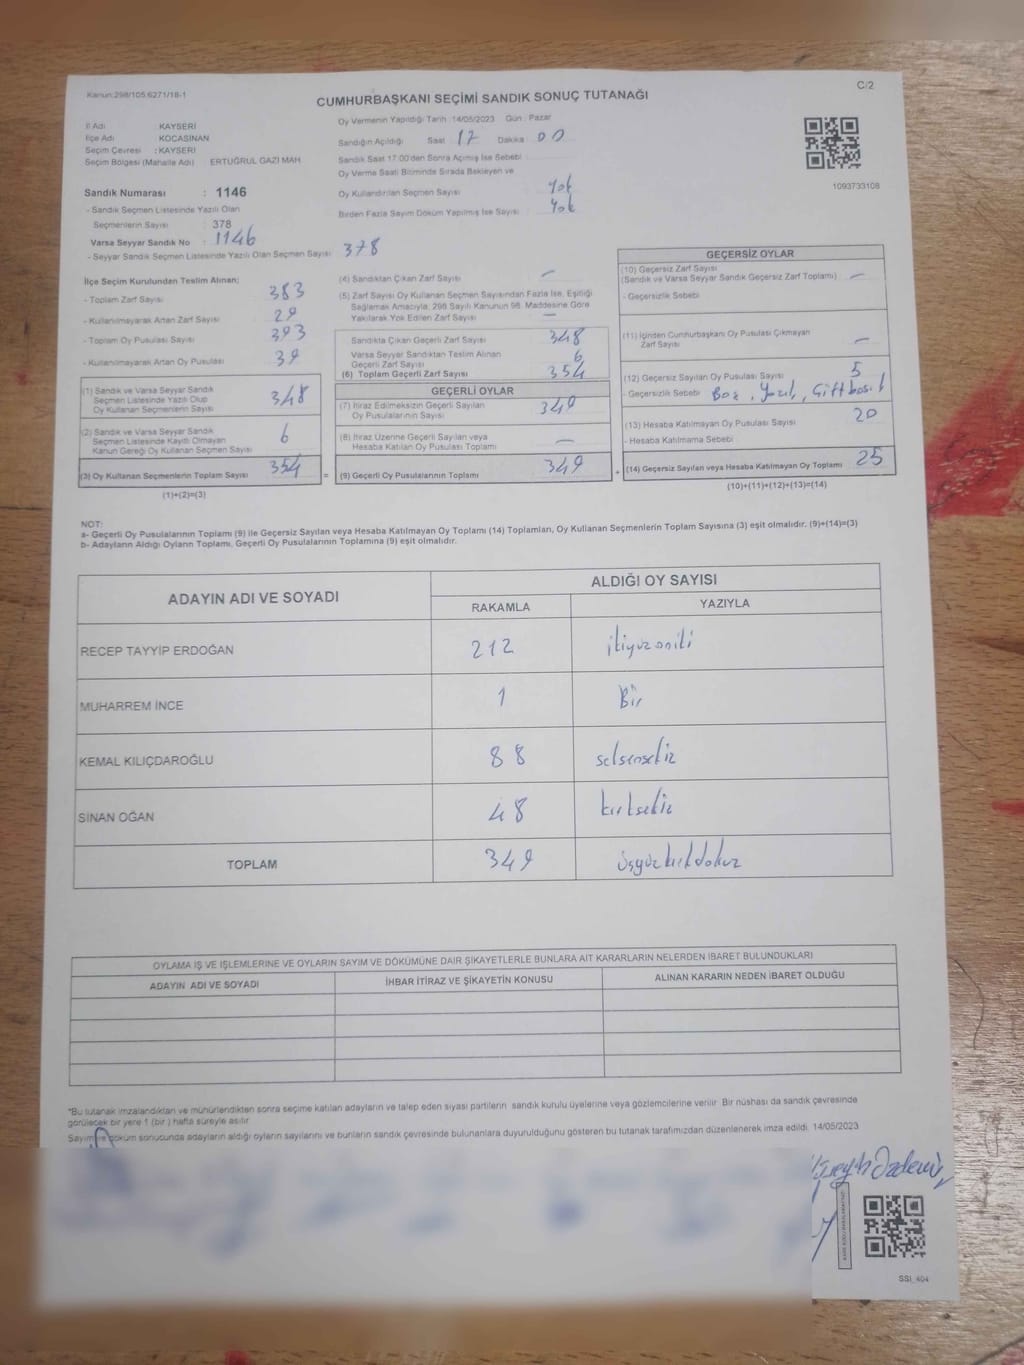 Kanun:298/105.6271/18-1
C/2
CUMHURBAŞKANI SEÇİMİ SANDIK SONUÇ TUTANAĞI
İl Adı KAYSERİ
İlçe Adı KOCASİNAN
Seçim Çevresi : KAYSERİ
Seçim Bölgesi (Mahalle Adı) ERTUĞRUL GAZİ MAH
Sandık Numarası : 1146
- Sandık Seçmen Listesinde Yazılı Olan
Seçmenlerin Sayısı : 378
Varsa Seyyar Sandık No : 1146
- Seyyar Sandık Seçmen Listesinde Yazılı Olan Seçmen Sayısı 378
Oy Vermenin Yapıldığı Tarih :14/05/2023 Gün : Pazar
Sandığın Açıldığı Saat 17 Dakika 00
Sandık Saat 17.00'den Sonra Açılmış İse Sebebi
Oy Verme Saati Bitiminde Sırada Bekleyen ve
Oy Kullandırılan Seçmen Sayısı Yok
Birden Fazla Sayım Döküm Yapılmış İse Sayısı Yok
1093733108
İlçe Seçim Kurulundan Teslim Alınan;
- Toplam Zarf Sayısı 383
- Kullanılmayarak Artan Zarf Sayısı 29
- Toplam Oy Pusulası Sayısı 393
- Kullanılmayarak Artan Oy Pusulası 39
(1) Sandık ve Varsa Seyyar Sandık
Seçmen Listesinde Yazılı Olup
Oy Kullanan Seçmenlerin Sayısı 348
(2) Sandık ve Varsa Seyyar Sandık
Seçmen Listesinde Kayıtlı Olmayan
Kanun Gereği Oy Kullanan Seçmen Sayısı 6
(3) Oy Kullanan Seçmenlerin Toplam Sayısı 354
(1)+(2)=(3)
(4) Sandıktan Çıkan Zarf Sayısı –
(5) Zarf Sayısı Oy Kullanan Seçmen Sayısından Fazla İse, Eşitliği
Sağlamak Amacıyla, 298 Sayılı Kanunun 98. Maddesine Göre
Yakılarak Yok Edilen Zarf Sayısı –
Sandıkta Çıkan Geçerli Zarf Sayısı 348
Varsa Seyyar Sandıktan Teslim Alınan
Geçerli Zarf Sayısı 6
(6) Toplam Geçerli Zarf Sayısı 354
GEÇERLİ OYLAR
(7) İtiraz Edilmeksizin Geçerli Sayılan
Oy Pusulalarının Sayısı 349
(8) İtiraz Üzerine Geçerli Sayılan veya
Hesaba Katılan Oy Pusulası Toplamı –
= (9) Geçerli Oy Pusulalarının Toplamı 349
GEÇERSİZ OYLAR
(10) Geçersiz Zarf Sayısı
(Sandık ve Varsa Seyyar Sandık Geçersiz Zarf Toplamı) –
- Geçersizlik Sebebi
(11) İçinden Cumhurbaşkanı Oy Pusulası Çıkmayan
Zarf Sayısı –
(12) Geçersiz Sayılan Oy Pusulası Sayısı 5
- Geçersizlik Sebebi Boş, Yazılı,
(13) Hesaba Katılmayan Oy Pusulası Sayısı 20
- Hesaba Katılmama Sebebi
+ (14) Geçersiz Sayılan veya Hesaba Katılmayan Oy Toplamı 25
(10)+(11)+(12)+(13)=(14)
NOT:
a- Geçerli Oy Pusulalarının Toplamı (9) ile Geçersiz Sayılan veya Hesaba Katılmayan Oy Toplamı (14) Toplamları, Oy Kullanan Seçmenlerin Toplam Sayısına (3) eşit olmalıdır. (9)+(14)=(3)
b- Adayların Aldığı Oyların Toplamı, Geçerli Oy Pusulalarının Toplamına (9) eşit olmalıdır.
ADAYIN ADI VE SOYADI
ALDIĞI OY SAYISI
RAKAMLA YAZIYLA
RECEP TAYYİP ERDOĞAN 212 ikiyüzoniki
MUHARREM İNCE 1 Bir
KEMAL KILIÇDAROĞLU 88 seksensekiz
SİNAN OĞAN 48 kırksekiz
TOPLAM 349 üçyüzkırkdokuz
OYLAMA İŞ VE İŞLEMLERİNE VE OYLARIN SAYIM VE DÖKÜMÜNE DAİR ŞİKAYETLERLE BUNLARA AİT KARARLARIN NELERDEN İBARET BULUNDUKLARI
ADAYIN ADI VE SOYADI İHBAR İTİRAZ VE ŞİKAYETİN KONUSU ALINAN KARARIN NEDEN İBARET OLDUĞU
*Bu tutanak imzalandıktan ve mühürlendikten sonra seçime katılan adayların ve talep eden siyasi partilerin sandık kurulu üyelerine veya gözlemcilerine verilir. Bir nüshası da sandık çevresinde
görülecek bir yere 1 (bir ) hafta süreyle asılır
Sayım ve döküm sonucunda adayların aldığı oyların sayılarını ve bunların sandık çevresinde bulunanlara duyurulduğunu gösteren bu tutanak tarafımızdan düzenlenerek imza edildi. 14/05/2023
SSI_404